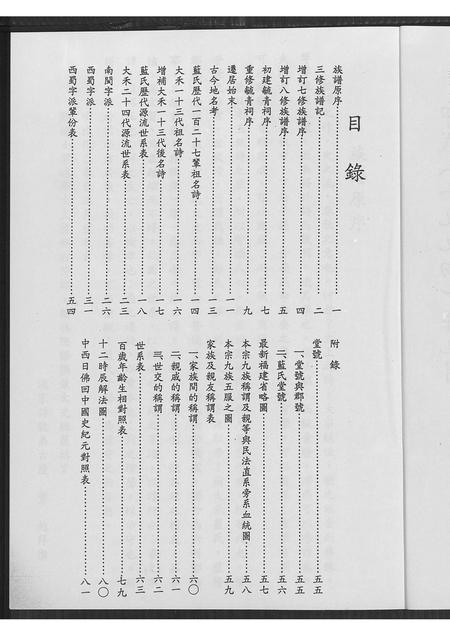 目錄
族譜原序……一
三修族譜記……二
增訂七修族譜序……四
增訂八修族譜序……五
初建毓青祠序……七
重修毓青祠序……九
遷居始末……一一
古今地名考……一三
藍氏歷代一百二十七輩祖名詩……一四
大禾一十三代祖名詩……一六
增補大禾一十三代後名詩……一七
藍氏歷代源流世系表……一八
大禾二十四代源流世系表……二三
南閩字派……二六
西蜀字派……三一
西蜀字派輩份表……五四
附錄
堂號……五五
一、堂號與郡號……五五
二、藍氏堂號……五六
最新福建省略圖……五七
本宗九族稱謂及親等與民法直系旁系血統圖……五八
本宗九族五服之圖……五九
家族及親友稱謂表
一、家族間的稱謂……六〇
二、親戚的稱謂……六一
三、世交的稱謂……六二
世系表……六三
百歲年齡生相對照表……七九
十二時辰解法圖……八〇
中西日佛回中國史紀元對照表……八一